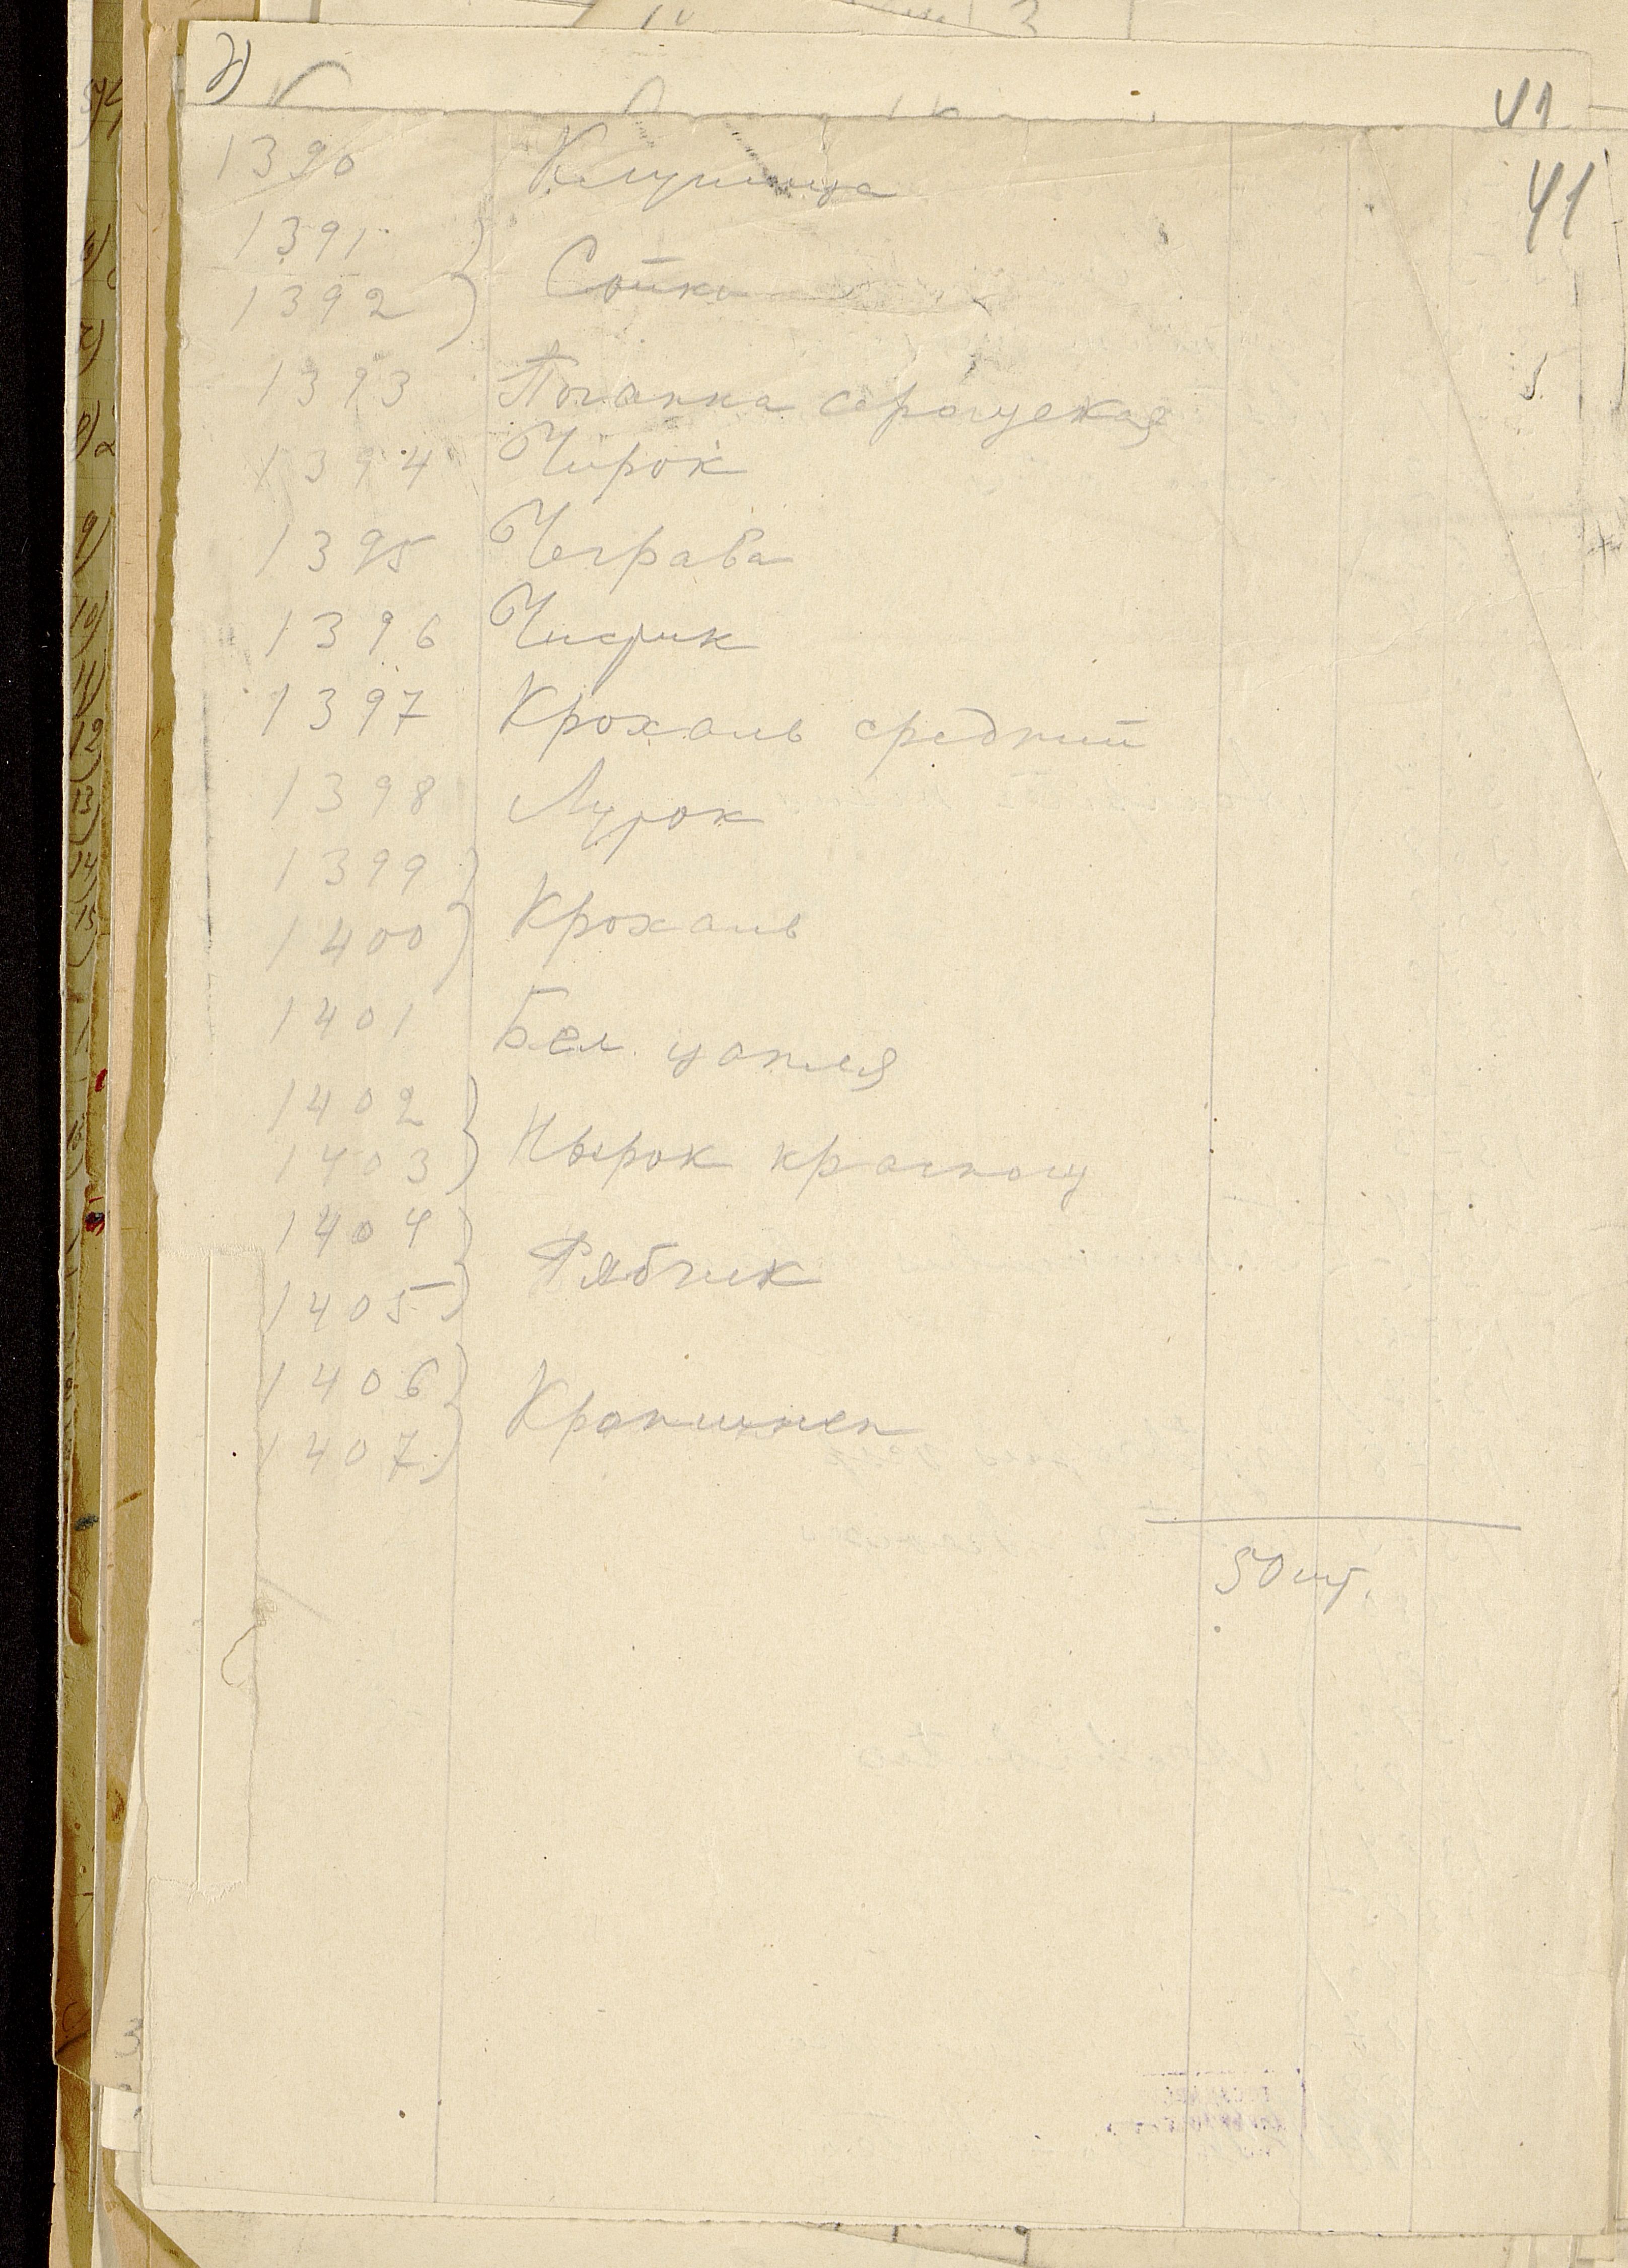 41
41
1390 Клушица
1391
1392 Сойка
1393 Поганка серощекая
1394 Чирок
1395 Чеграва
1396 Чистик
1397 Крохаль средний
1398 Луток
1399
1400 Крохаль
1401 Бел. цапля
1402
1403 Нырок красноц
1404
1405 Рябчик
1406
1407
50 шт.